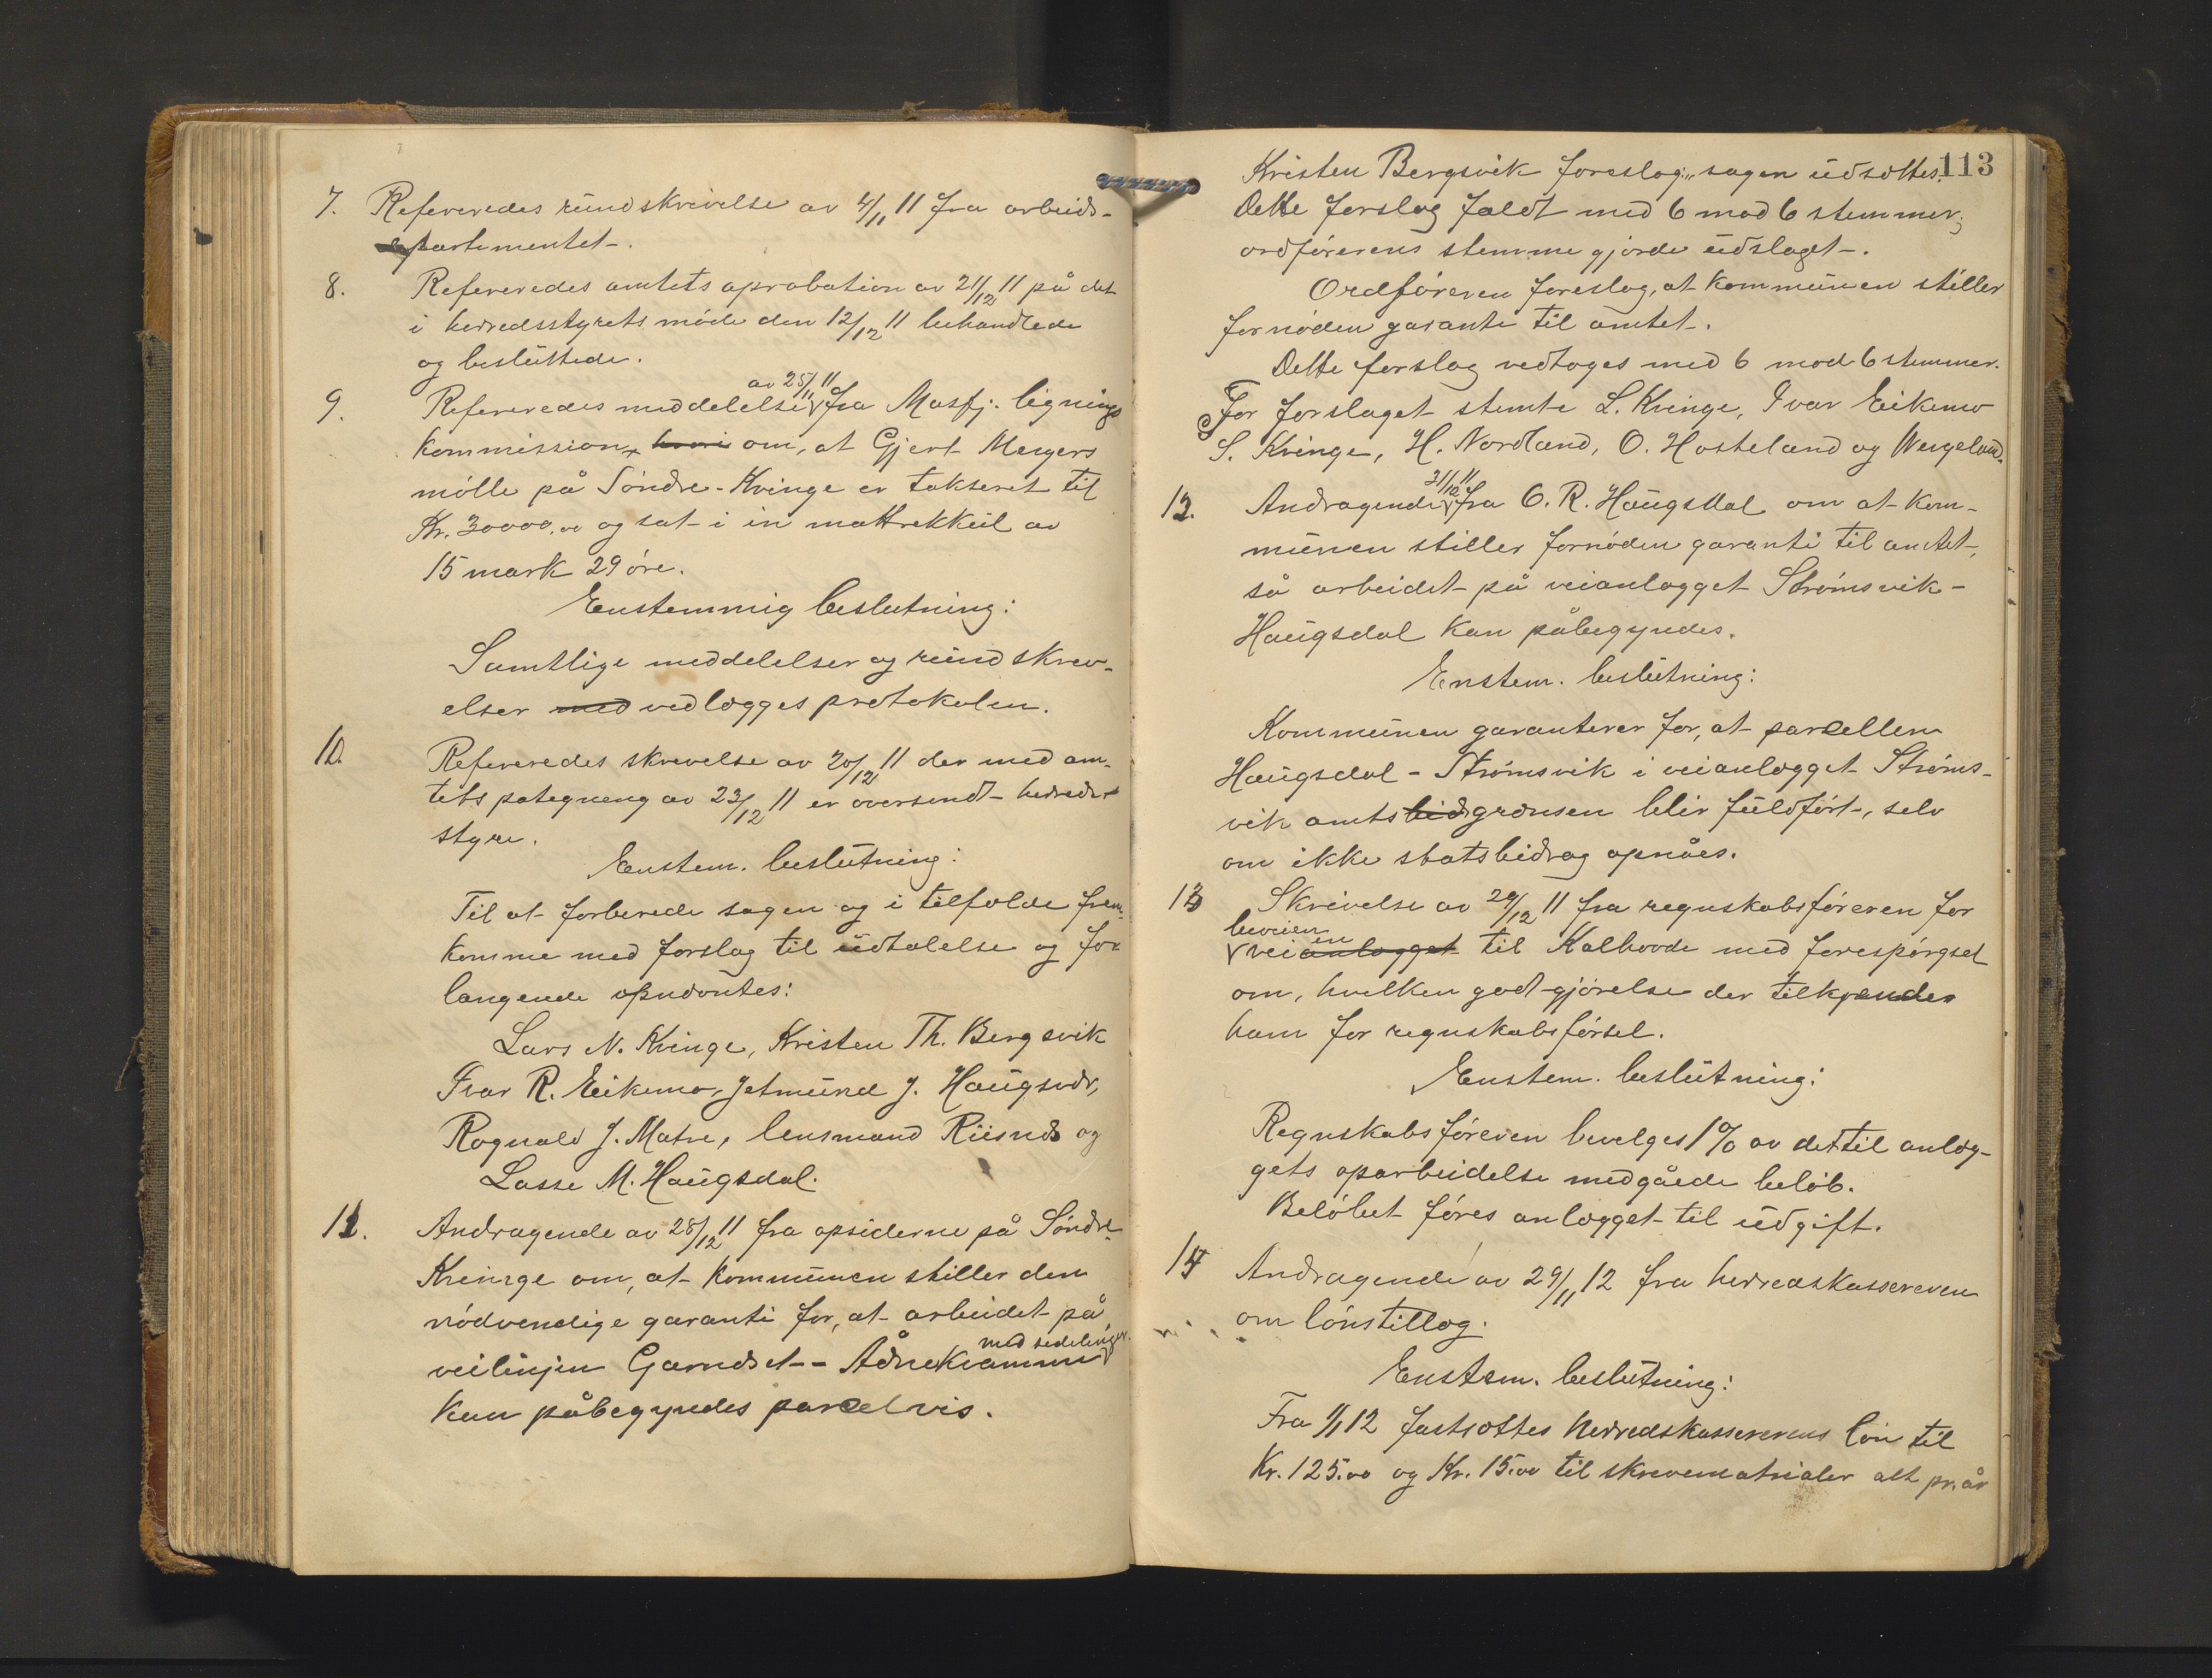 7. Refereredes rundskrivelse av 4/11 11 fra arbeids-
departementet.
8. Refereredes amtets aprobation av 21/12 11 på det
i herredsstyrets møde den 12/12 11 behandlede
og besluttede.
9. Refereredes meddelelse av 25/11 11 fra Masfj. lignings
kommission, hvori om, at Gjert Meyers
mølle på Søndre-Kvinge er takseret til
Kr. 30000.00 og sat i in mattrekkul av
15 mark 29 øre.
Enstemmig beslutning:
Samtlige meddelelser og rundskriv-
elser med vedlægges protokolen.
10. Refereredes skrivelse av 20/12 11 der med am-
tets påtegneng av 23/12 11 er oversendt herreds-
styre.
Enstem. beslutning:
Til at forberede sagen og i tilfælde frem-
komme med forslag til udtalelse og for
langende opnævntes:
Lars N. Kvinge, Kristen Th. Bergsvik
Ivar R. Eikemo, Jetmund J. Haugsvær,
Rognald J. Matre, lensmand Riisnes og
Lasse M. Haugsdal.
11. Andragende av 28/12 11 fra opsiderne på Søndre
Kvinge om, at kommunen stiller den
nødvendige garanti for, at arbeidet på
veilinjen Garnæset - Ådnekvamme med sidelinjer
kan påbegyndes parcelvis.
113
Kristen Bergsvik foreslog: "sagen udsættes."
Dette forslag faldt med 6 mod 6 stemmer;
ordførerens stemme gjorde udslaget.
Ordføreren foreslog, at kommunen stiller
fornøden garanti til amtet.
Dette forslag vedtoges med 6 mod 6 stemmer.
For forslaget stemte L. Kvinge, Ivar Eikemo
S. Kvinge, H. Nordland, O. Hosteland og Wergeland.
12. Andragende 21/10 11 fra O. R. Haugsdal om at kom-
munen stiller fornøden garanti til amtet,
så arbeidet på veianlægget Strømsvik-
Haugsdal kan påbegyndes.
Enstem. beslutning:
Kommunen garanterer for, at parcellen
Haugsdal - Strømsvik i veianlægget Strøms-
vik amtsbidgrænsen blir fuldført, selv
om ikke statsbidrag opnåes.
13 Skrivelse av 29/12 11 fra regnskabsføreren for
bveien
veianlægget en til Kalhovde med forespørgsel
om, hvilken godtgjørelse der tilkjendes
ham for regnskabsførsel.
Enstem. beslutning:
Regnskabsføreren bevilges 1% av det til anlæg-
gets oparbeidelse medgåede beløb.
Beløbet føres anlægget til udgift.
14 Andragende av 29/11 12 fra herredskassereren
om lønstillæg.
Enstem. beslutning:
Fra 1/1 12 fastsættes herredskassererens løn til
Kr. 125.00 og Kr. 15.00 til skrivematrialer alt pr. år